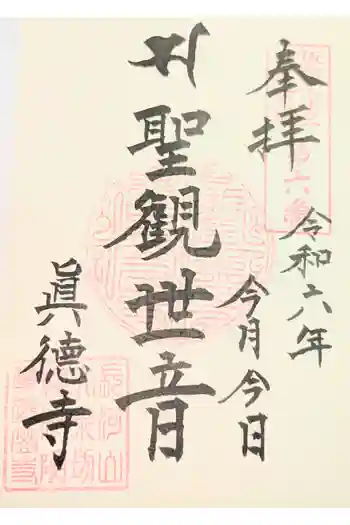 奉拝
令和六年
今月今日
聖觀世音
眞德寺